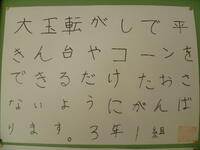 大玉転がしで平
きん台やコーンを
できるだけたおさ
ないようにがんば
ります。3年1組